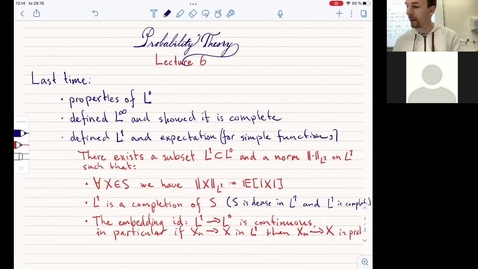 13.14 to 28.10.
50 %
Probability Theory
Lecture 6
Last time:
· properties of L⁰
· defined L^∞ and showed it is complete
· defined L¹ and expectation (for simple functions)
There exists a subset L¹ ⊂ L⁰ and a norm ‖·‖_{L¹} on L¹
such that:
· ∀X∈S we have ‖X‖_{L¹} := 𝔼[|X|]
· L¹ is a completion of S (S is dense in L¹ and L¹ is complete)
· The embedding id: L¹ → L⁰ is continuous,
in particular if Xn → X in L¹ then Xn → X in prob